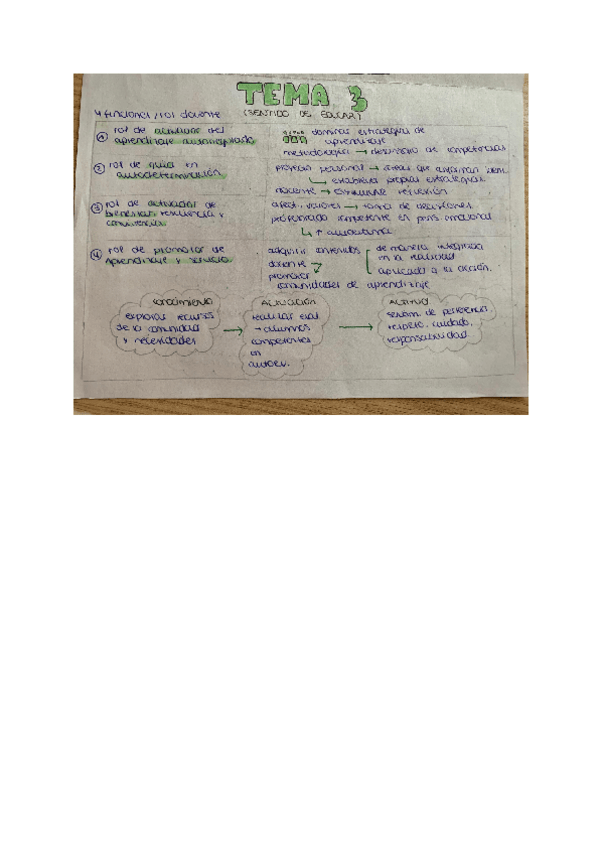 TEMA 3
(SENTIDO DE EDUCAR)
4 funciones / rol docente
① rol de activador del
aprendizaje autorregulado
dominar estrategias de
aprendizaje
metodología → desarrollo de competencias
② rol de guía en
autodeterminación
proyecto personal → áreas que conforman iden.
↳ establecer propias estrategias
docente → estimular reflexión
③ rol de activador de
bienestar, resiliencia y
convivencia
valores → toma de decisiones
profesorado competente en emocional
↳ ↑ autoestima
④ rol de promotor de
aprendizaje y servicio
adquirir contenidos
docente
promover
comunidades de aprendizaje
de manera integrada
en la realidad
aplicado a la acción.
conocimiento
explorar recursos
de la comunidad
y necesidades
→
Actuación
realizar
→ alumnos
competentes
en
→
Actitud
pertenencia,
respeto, cuidado,
responsabilidad